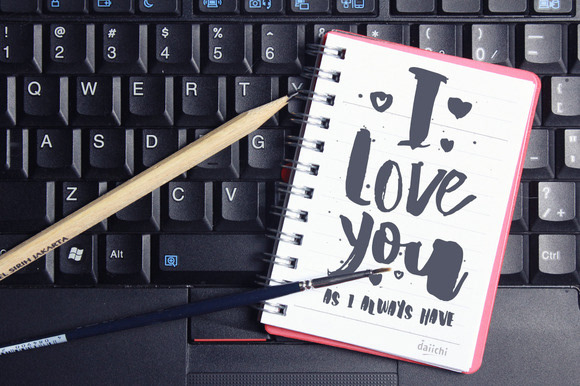 I
Love
you
AS I ALWAYS HAVE
daiichi
SIRIH JAKARTA
! 1 @ 2 # 3 $ 4 % 5
Q W E R T
A S D
Z C V
Alt
Ctrl